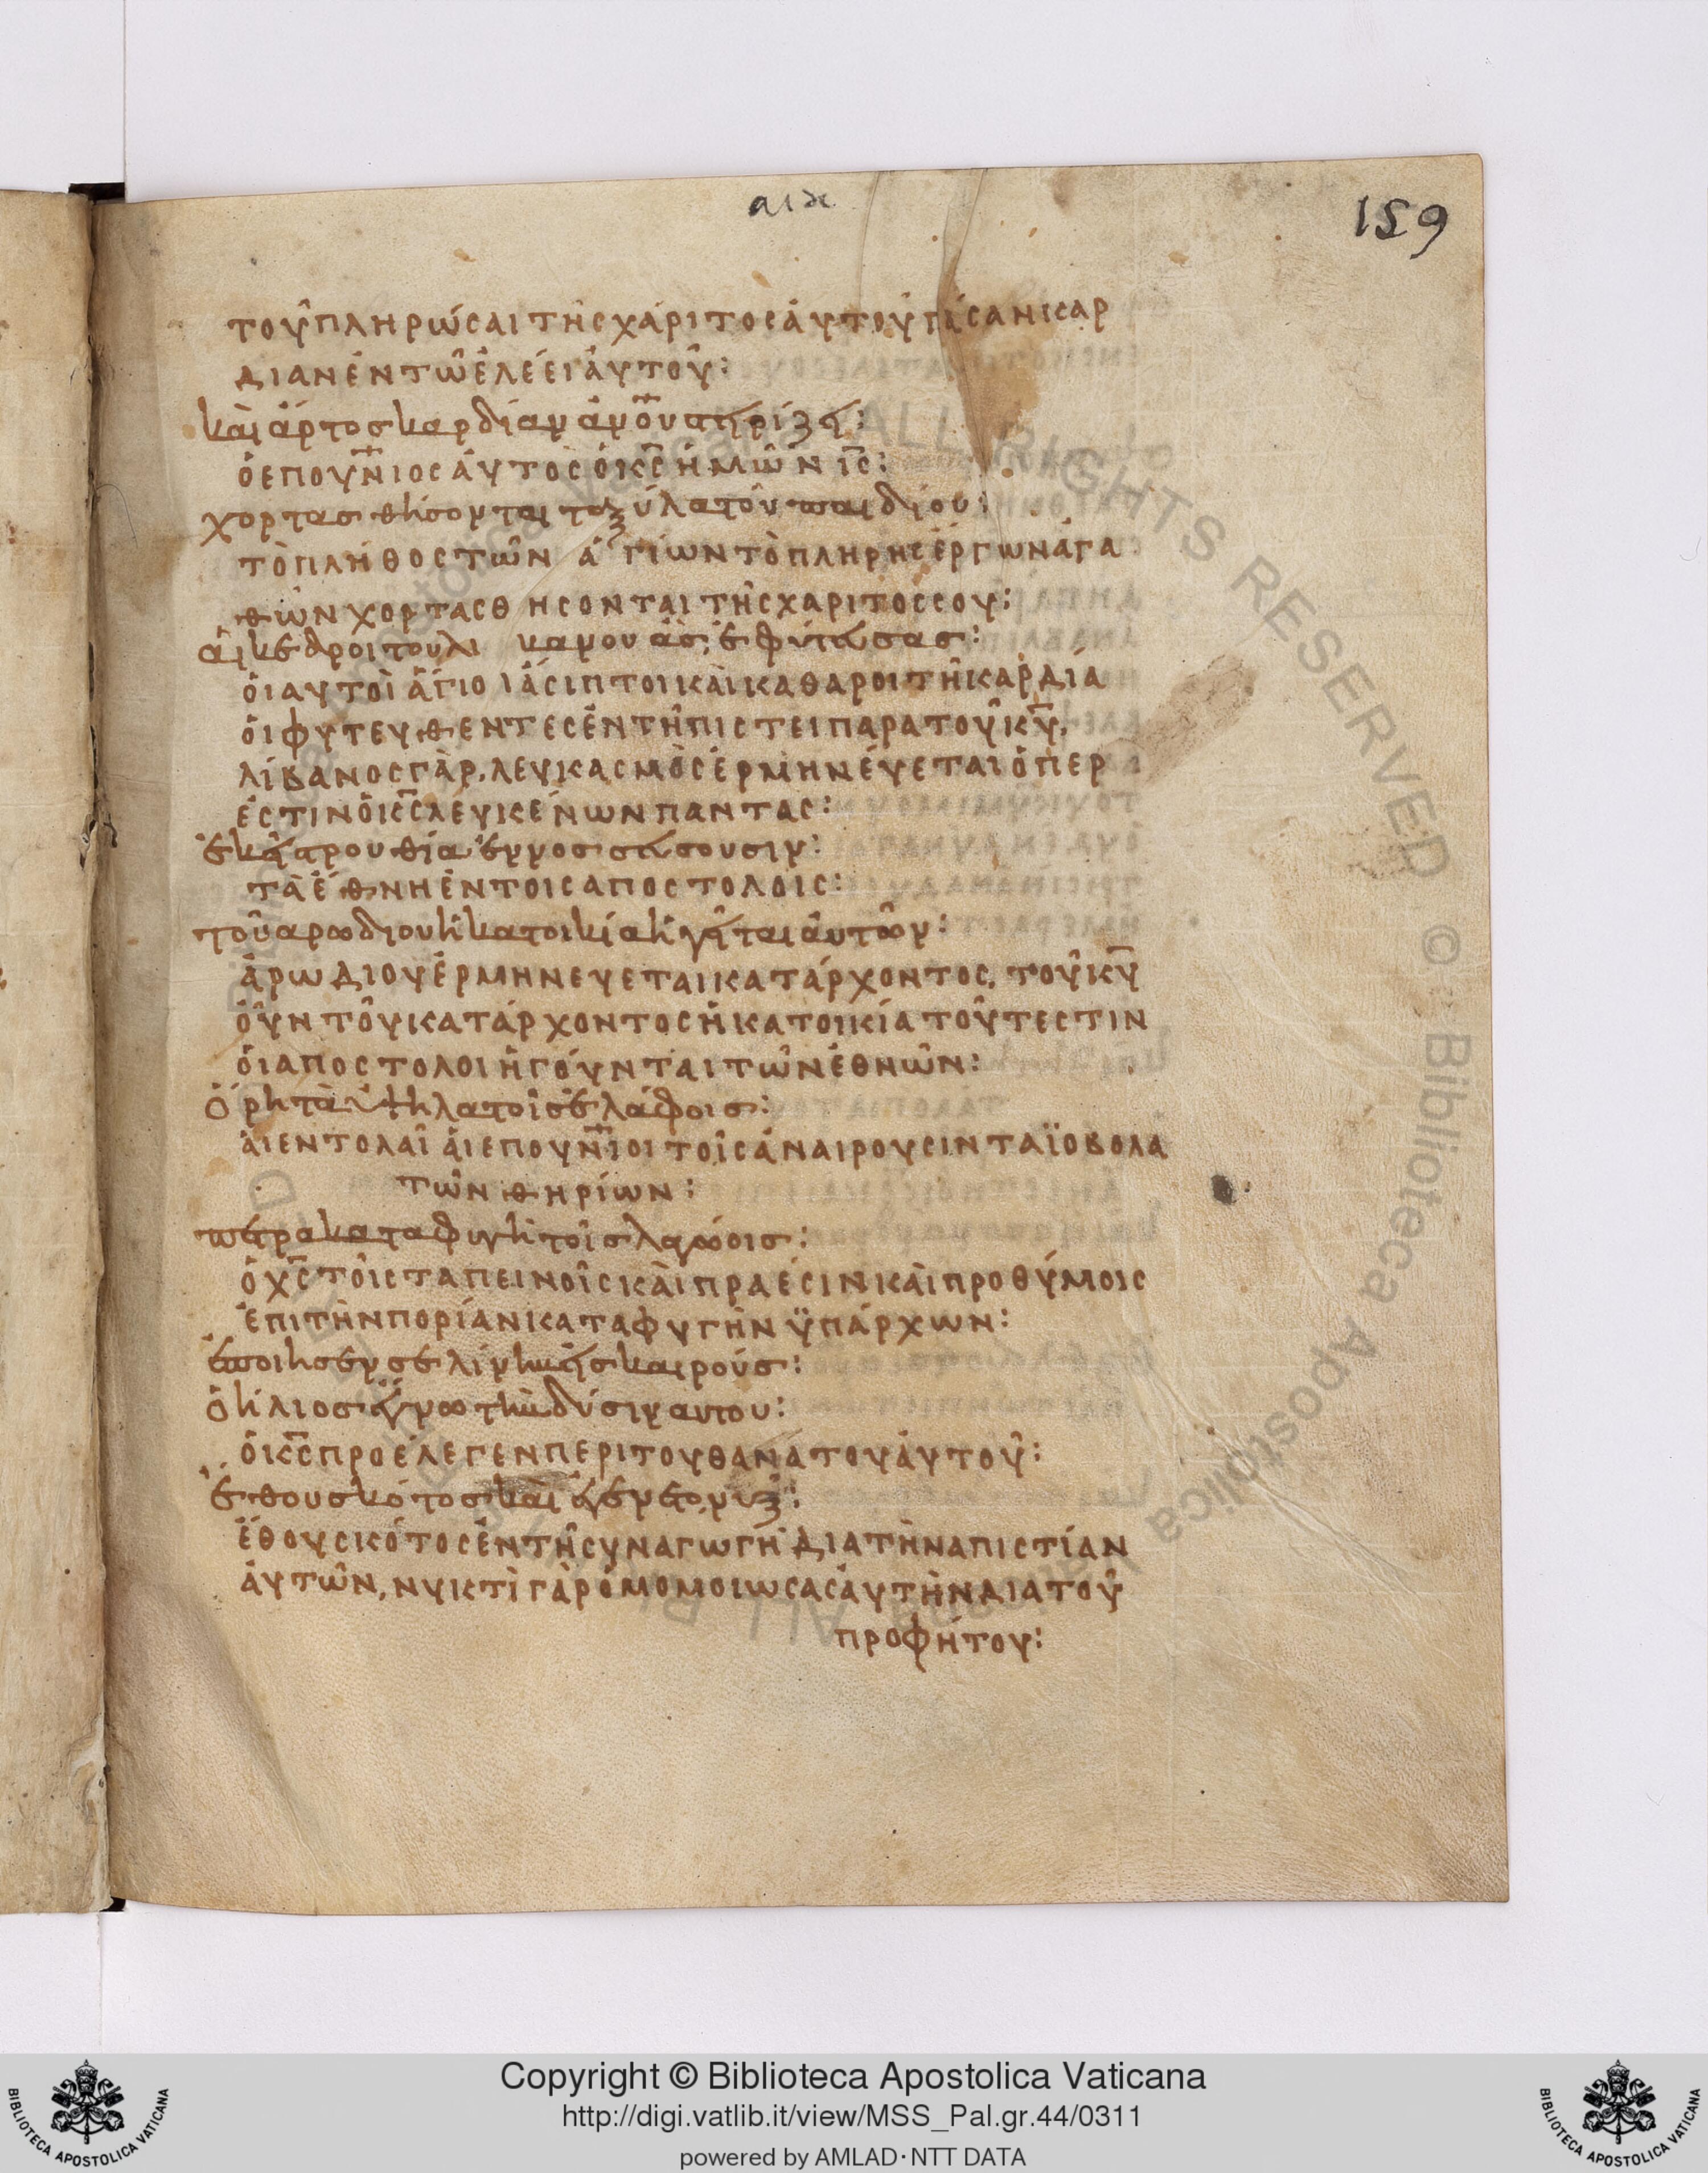 αιϰ
159
τοῦ πληρώσαι τῆς χάριτος ἀυτοῦ πάσαν καρ
διαν ἐν τῶ ἐλέει ἀυτοῦ:
κὰι ἄρτος καρδίαν ἀν̅ο̅υ στηρίζει:
ὁ επουν̅ιος ἄυτος ὁ κ̅ς̅ ἡμῶν ι̅ς̅:
χορτασθήσονται τὰ ξύλα τοῦ παιδίου:
τὸ πλήθος τῶν ἁγίων τὸ πληρης ἔργων ἀγα
θῶν χορτασθησονται τῆς χαριτος σου:
ἁι κεδροι του λιβανου ἃς ἐφύτευσας:
ὁι αυτοὶ ἅγιοι ἄσιπτοι κὰι καθαροι τῆ καρδία
ὁι φυτευθεντες ἐν τῆ πιστει παρα τοῦ κ̅υ̅,
λίβανος γὰρ, λευκασμὸς ἑρμηνέυεται ὅπερ
ἐστιν ὁ κ̅ς̅ λευκένων παντας:
ἐκεῖ στρουθία ἐννοσσεύσουσιν:
τὰ ἔθνη ἐν τοις αποστολοις:
τοῦ αρωδιου ἡ κατοικία ἡγεῖται ἀυτῶν:
ἀρωδιου ἑρμηνευεται κατάρχοντος, τοῦ κ̅υ̅
ὀῦν τοῦ κατάρχοντος ἡ κατοικία τοῦτεστιν
ὁι αποστολοι ἡγοῦνται τῶν ἐθνῶν:
ὄρη τὰ ὑψηλα τοῖς ἐλάφοις:
ἁι εντολαῖ ἁι επουν̅ιοι τοῖς ἀναιρουσιν τα ϊοβολα
τῶν θηρίων:
πέτρα καταφυγὴ τοῖς λαγωοις:
ὁ χ̅ς̅ τοῖς ταπεινοῖς κὰι πραέσιν κὰι προθύμοις
ἐπι τὴν πορίαν καταφυγὴν ϋπάρχων:
ἐποιησεν σελίνην εἰς καιρούς:
ὁ ἥλιος ἔγνω τὴν δύσιν αυτου:
ὁ κ̅ς̅ προέλεγεν περι του θανατου ἀυτοῦ:
ἔθου σκότος κὰι ἐγένετο νύξ:
ἔθου σκότος ἐν τῆ συναγωγῆ δια τὴν απιστίαν
ἀυτῶν, νυκτὶ γὰρ ὁμομοιωσας ἀυτὴν δια τοῦ
προφήτου:
Copyright © Biblioteca Apostolica Vaticana
http://digi.vatlib.it/view/MSS_Pal.gr.44/0311
powered by AMLAD·NTT DATA
BIBLIOTECA APOSTOLICA VATICANA
BIBLIOTECA APOSTOLICA VATICANA